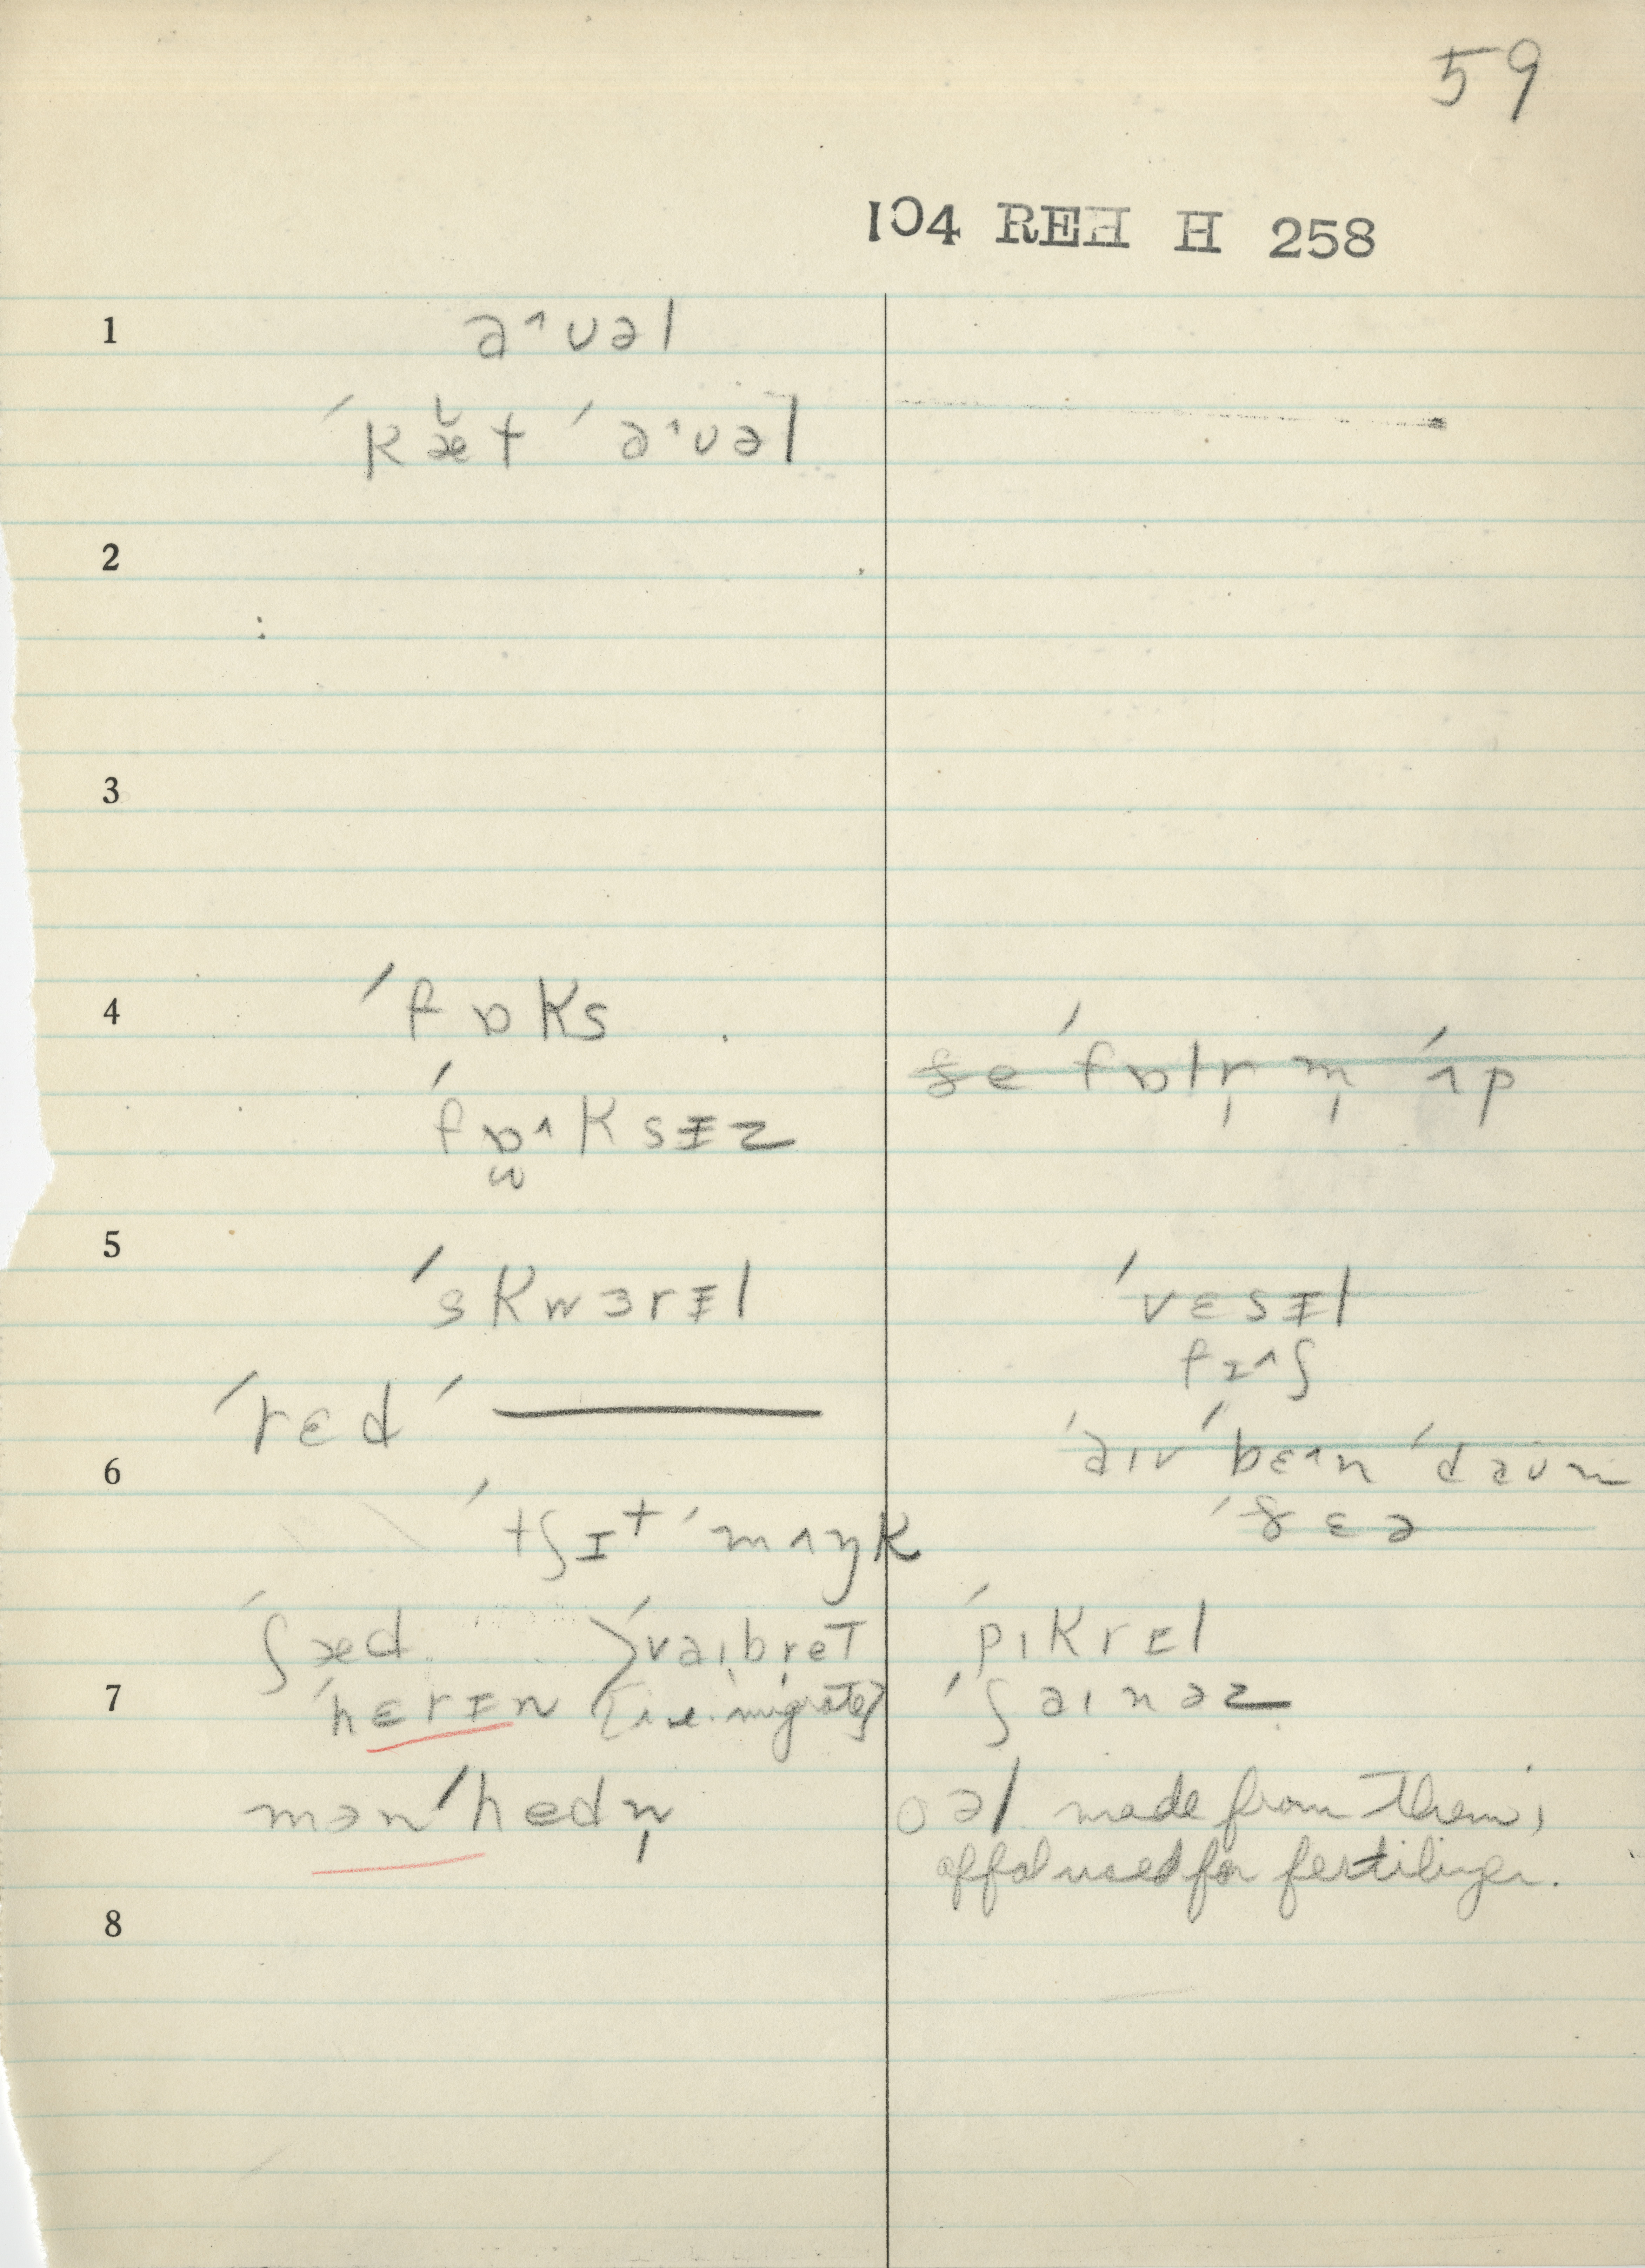 59
104 REH H 258
1
a˄ʊəl
ˈkæ̆t ˈa˄ʊəl
2
3
4
ˈfɒks
ðe ˈfɒlr̩ m̩ ˈʌp
ˈfɒ̫˄ksɪ̵z
5
ˈskwɜrɪ̵l
ˈvɛsɪ̵l
fɪ˄ʃ
ˈrɛd ˈ———
6
ˈaɪv ˈbɛ˄n ˈdaʊn
ˈðɛə
ˈtʃɪt ˈmʌŋk
ˈʃæd
ˈvaɪbret
ˈpɪkrɪl
7
ˈhɛrɪ̵n
[i.e. migrate]
ˈʃaɪnəz
mənˈhedn̩
oəl made from them;
offal used for fertilizer.
8